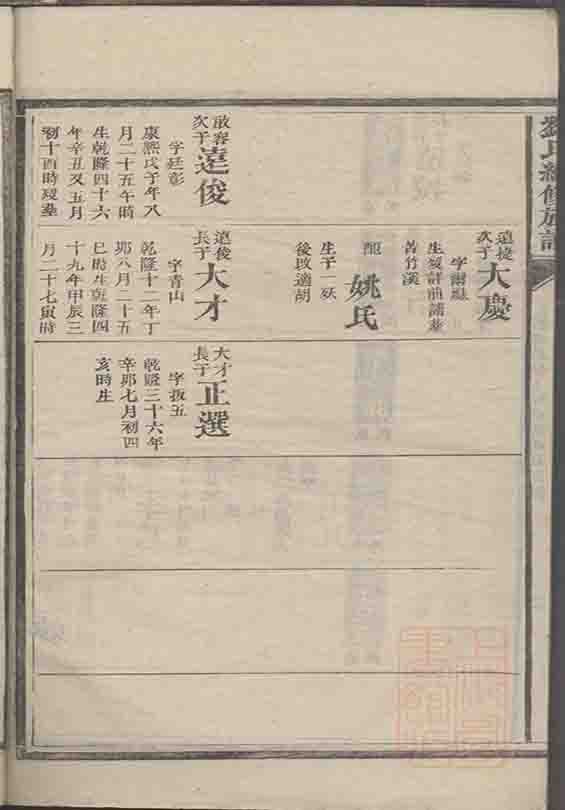 劉氏續修族譜
遠捷
次子
大慶
字爾
生
葬
苦竹溪
配
姚氏
生子一殀
後改適胡
啟容
次子
遠俊
字廷彰
康熙戊子年八
月二十五午時
生乾隆四十六
年辛丑又五月
初十酉時歿葬
遠俊
長子
大才
字青山
乾隆十二年丁
卯八月二十五
巳時生乾隆四
十九年甲辰三
月二十七寅時
大才
長子
正選
字拔五
乾隆三十六年
辛卯七月初四
亥時生